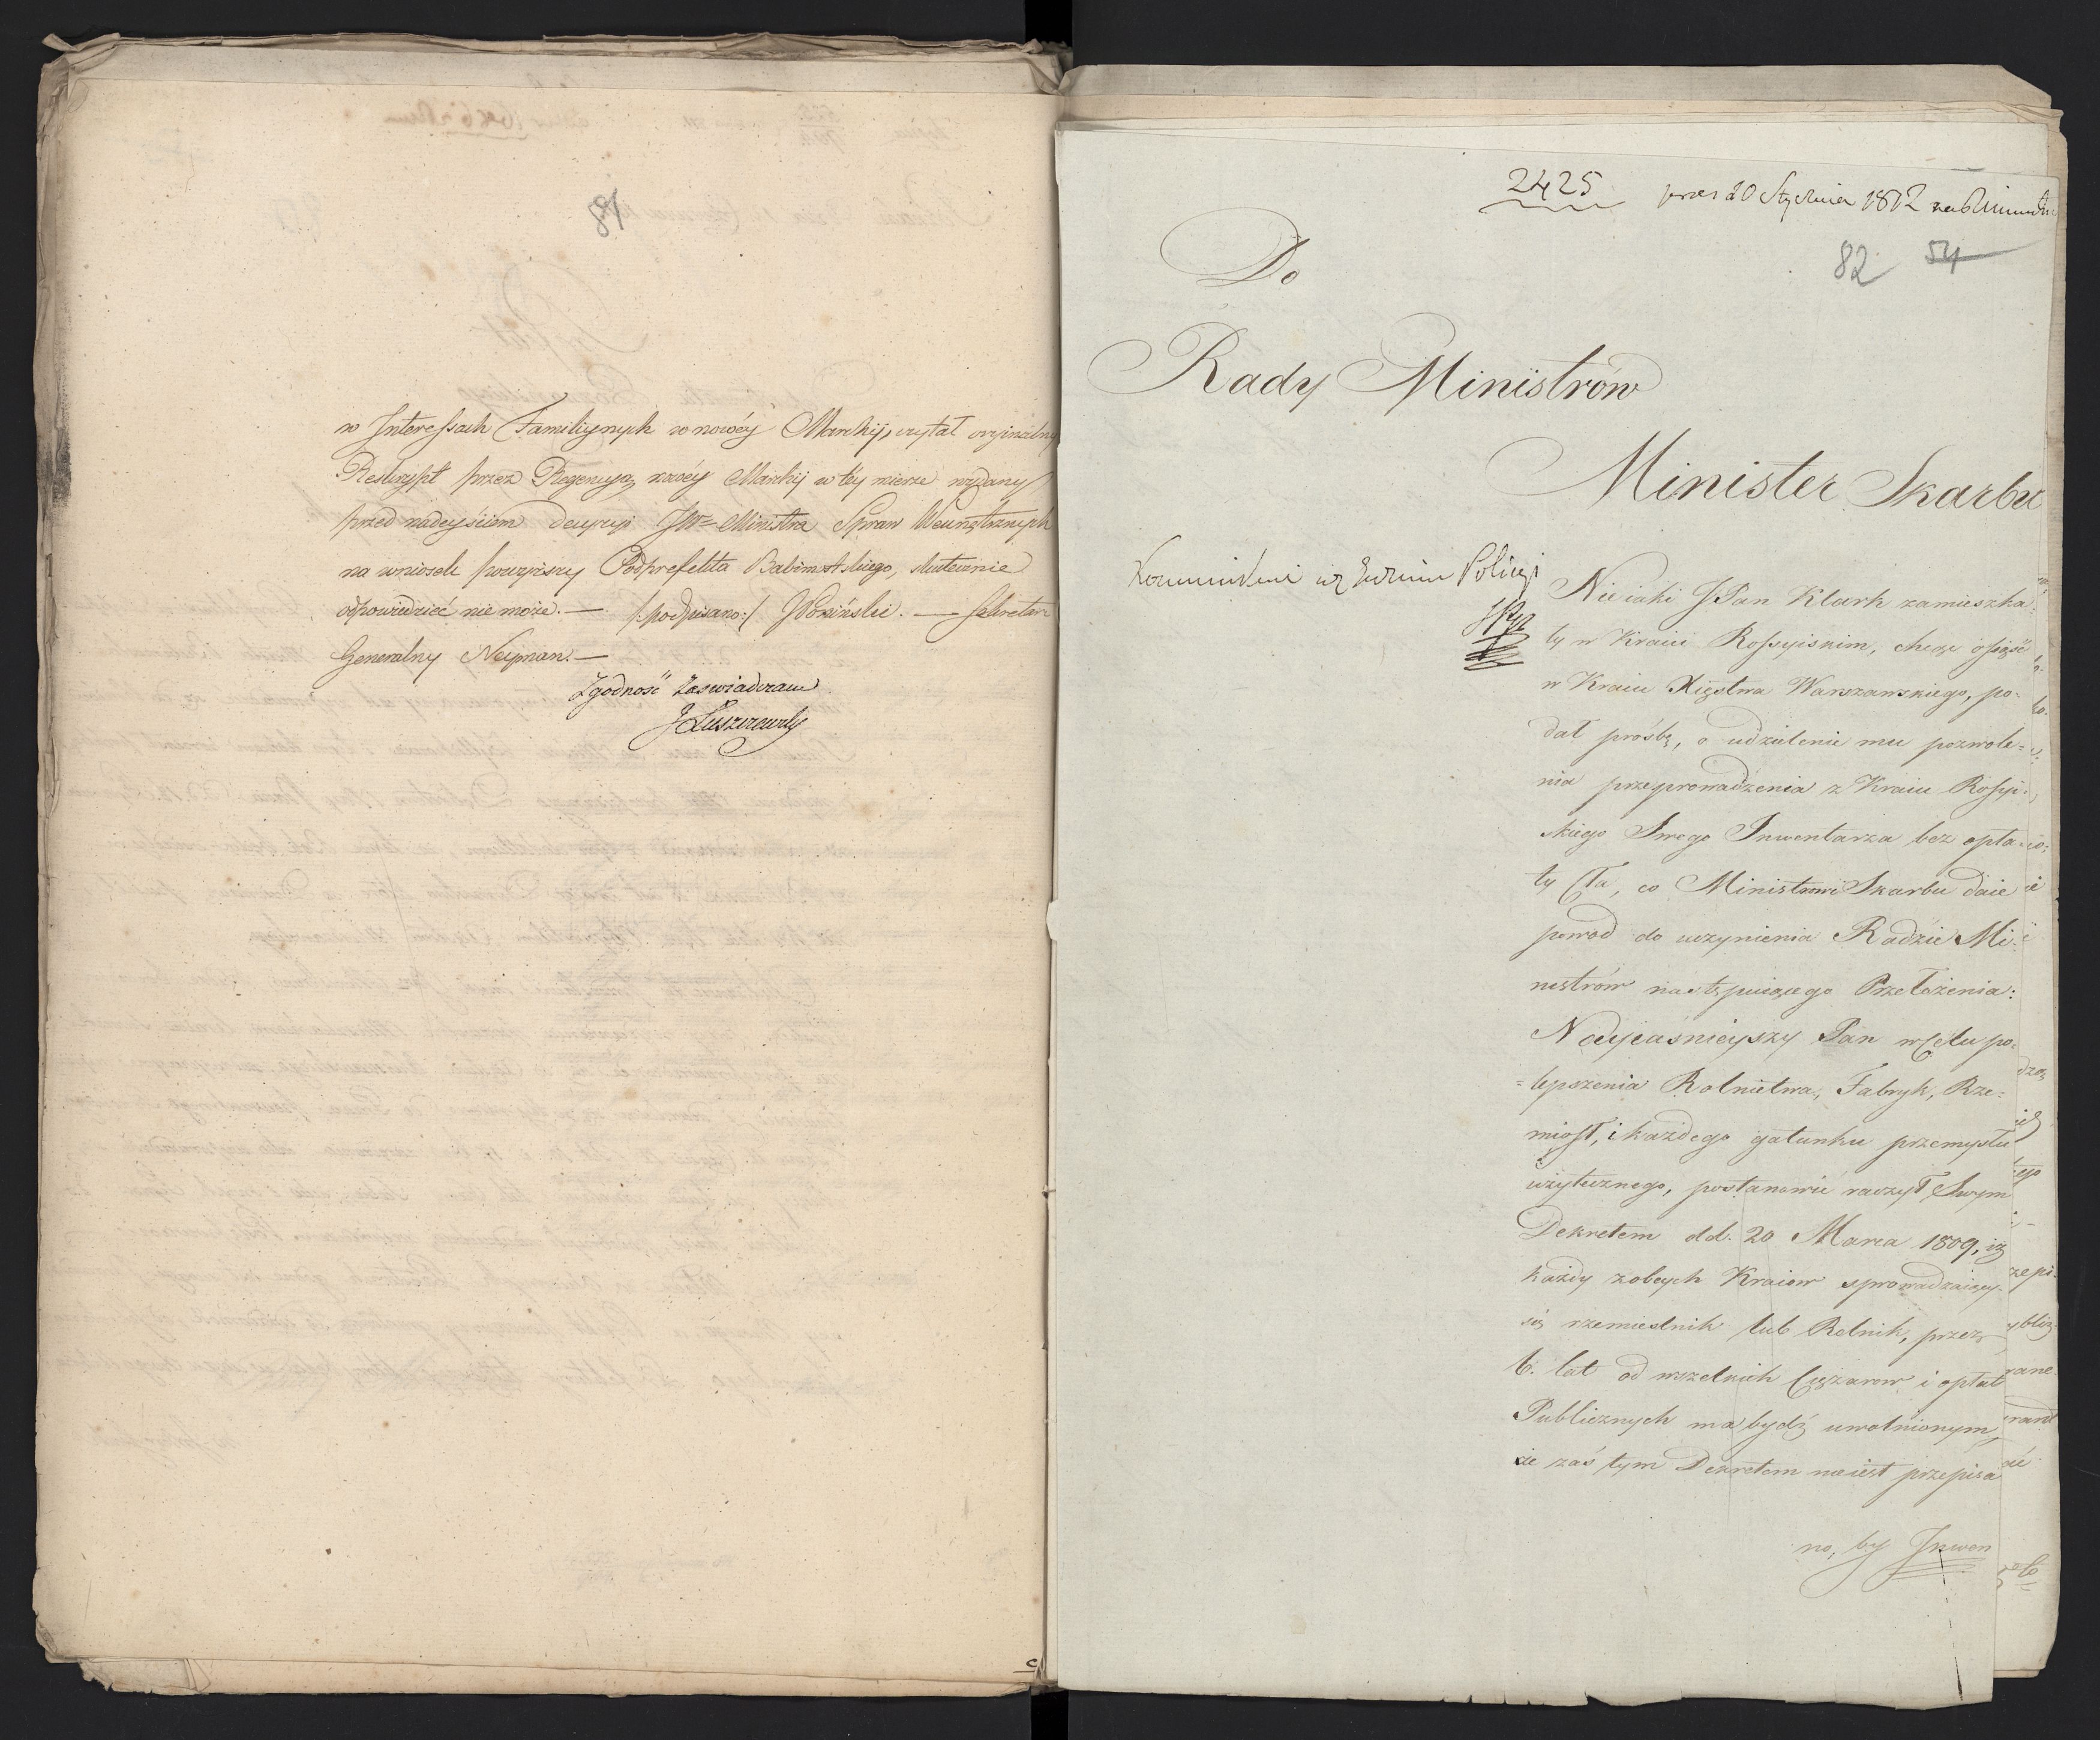 81
w Interessach Familiynych w nowéy Marchij, czytał oryginalny
Reskrypt przez Regencyą nowéy Marchij w téy mierze wydany
przed nadeyściem decyzyi JW= Ministra Spraw Wewnętrznych
na wniosek powyższy Podprefekta Babimostskiego, skutecznie
odpowiedzieć nie może. — /:podpisano:/ — Sekretarz
Generalny Neyman. —
Zgodność zaswiadczam
J Łuszczewski
2425 prez 20 Stycznia 1812
82 54
Do
Rady Ministrów
Minister Skarbu
Policyi
Nieiaki JPan Klark zamieszka-
ły w Kraiu Rossyiskim, chcąc osiąść
w Kraiu Xięstwa Warszawskiego, po-
dał prośbę, o udzielenie mu pozwole-
nia przeprowadzenia z Kraiu Rossyi-
skiego Swego Inwentarza bez opła-
ty Cła, co Ministrowi Skarbu daie
powod do uczynienia Radzie Mi-
nistrów następuiącego Przełożenia:
Nayiaśnieyszy Pan w Celu po-
=lepszenia Rolnictwa, Fabryk, Rze=
miosł, i każdego gatunku przemysłu
użytecznego, postanowić raczył Swym
Dekretem dd. 20 Marca 1809, iż
każdy z obcych Kraiow sprowadzaiący
się rzemieslnik lub Rolnik, przez
6. lat od wszelkich Ciężarow i opłat
Publicznych ma bydź uwolnionym,
że zaś tym Dekretem nie iest przepisa
no, by Inwen